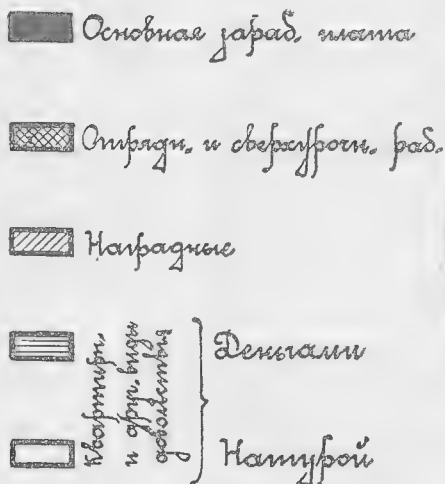 Основная зараб. плата
Отрядн. и сверхурочн. раб.
Наградные
Квартирн.
и друг. виды
довольствия
Деньгами
Натурой